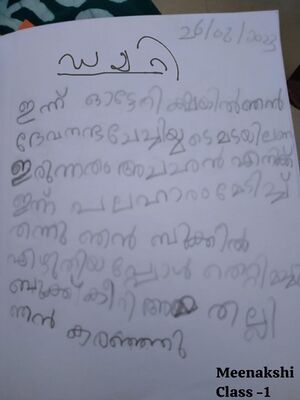 26/02/2023
ഡയറി
ഇന്ന് ഓട്ടോറിക്ഷയിൽ ഞൻ
ദേവനന്ദ ചേച്ചിയുടെ മടയിലാണ്
ഇരുന്നത് അച്ചൻ എനിക്ക്
ഇന്ന് പലഹാരം മേടിച്ച്
തന്നു ഞൻ ബുക്കിൽ
എഴുതിയപ്പോൾ തെറ്റിയ
ബുക്ക് കീറി അമ്മ തല്ലി
ഞൻ കരഞ്ഞു
Meenakshi
Class -1